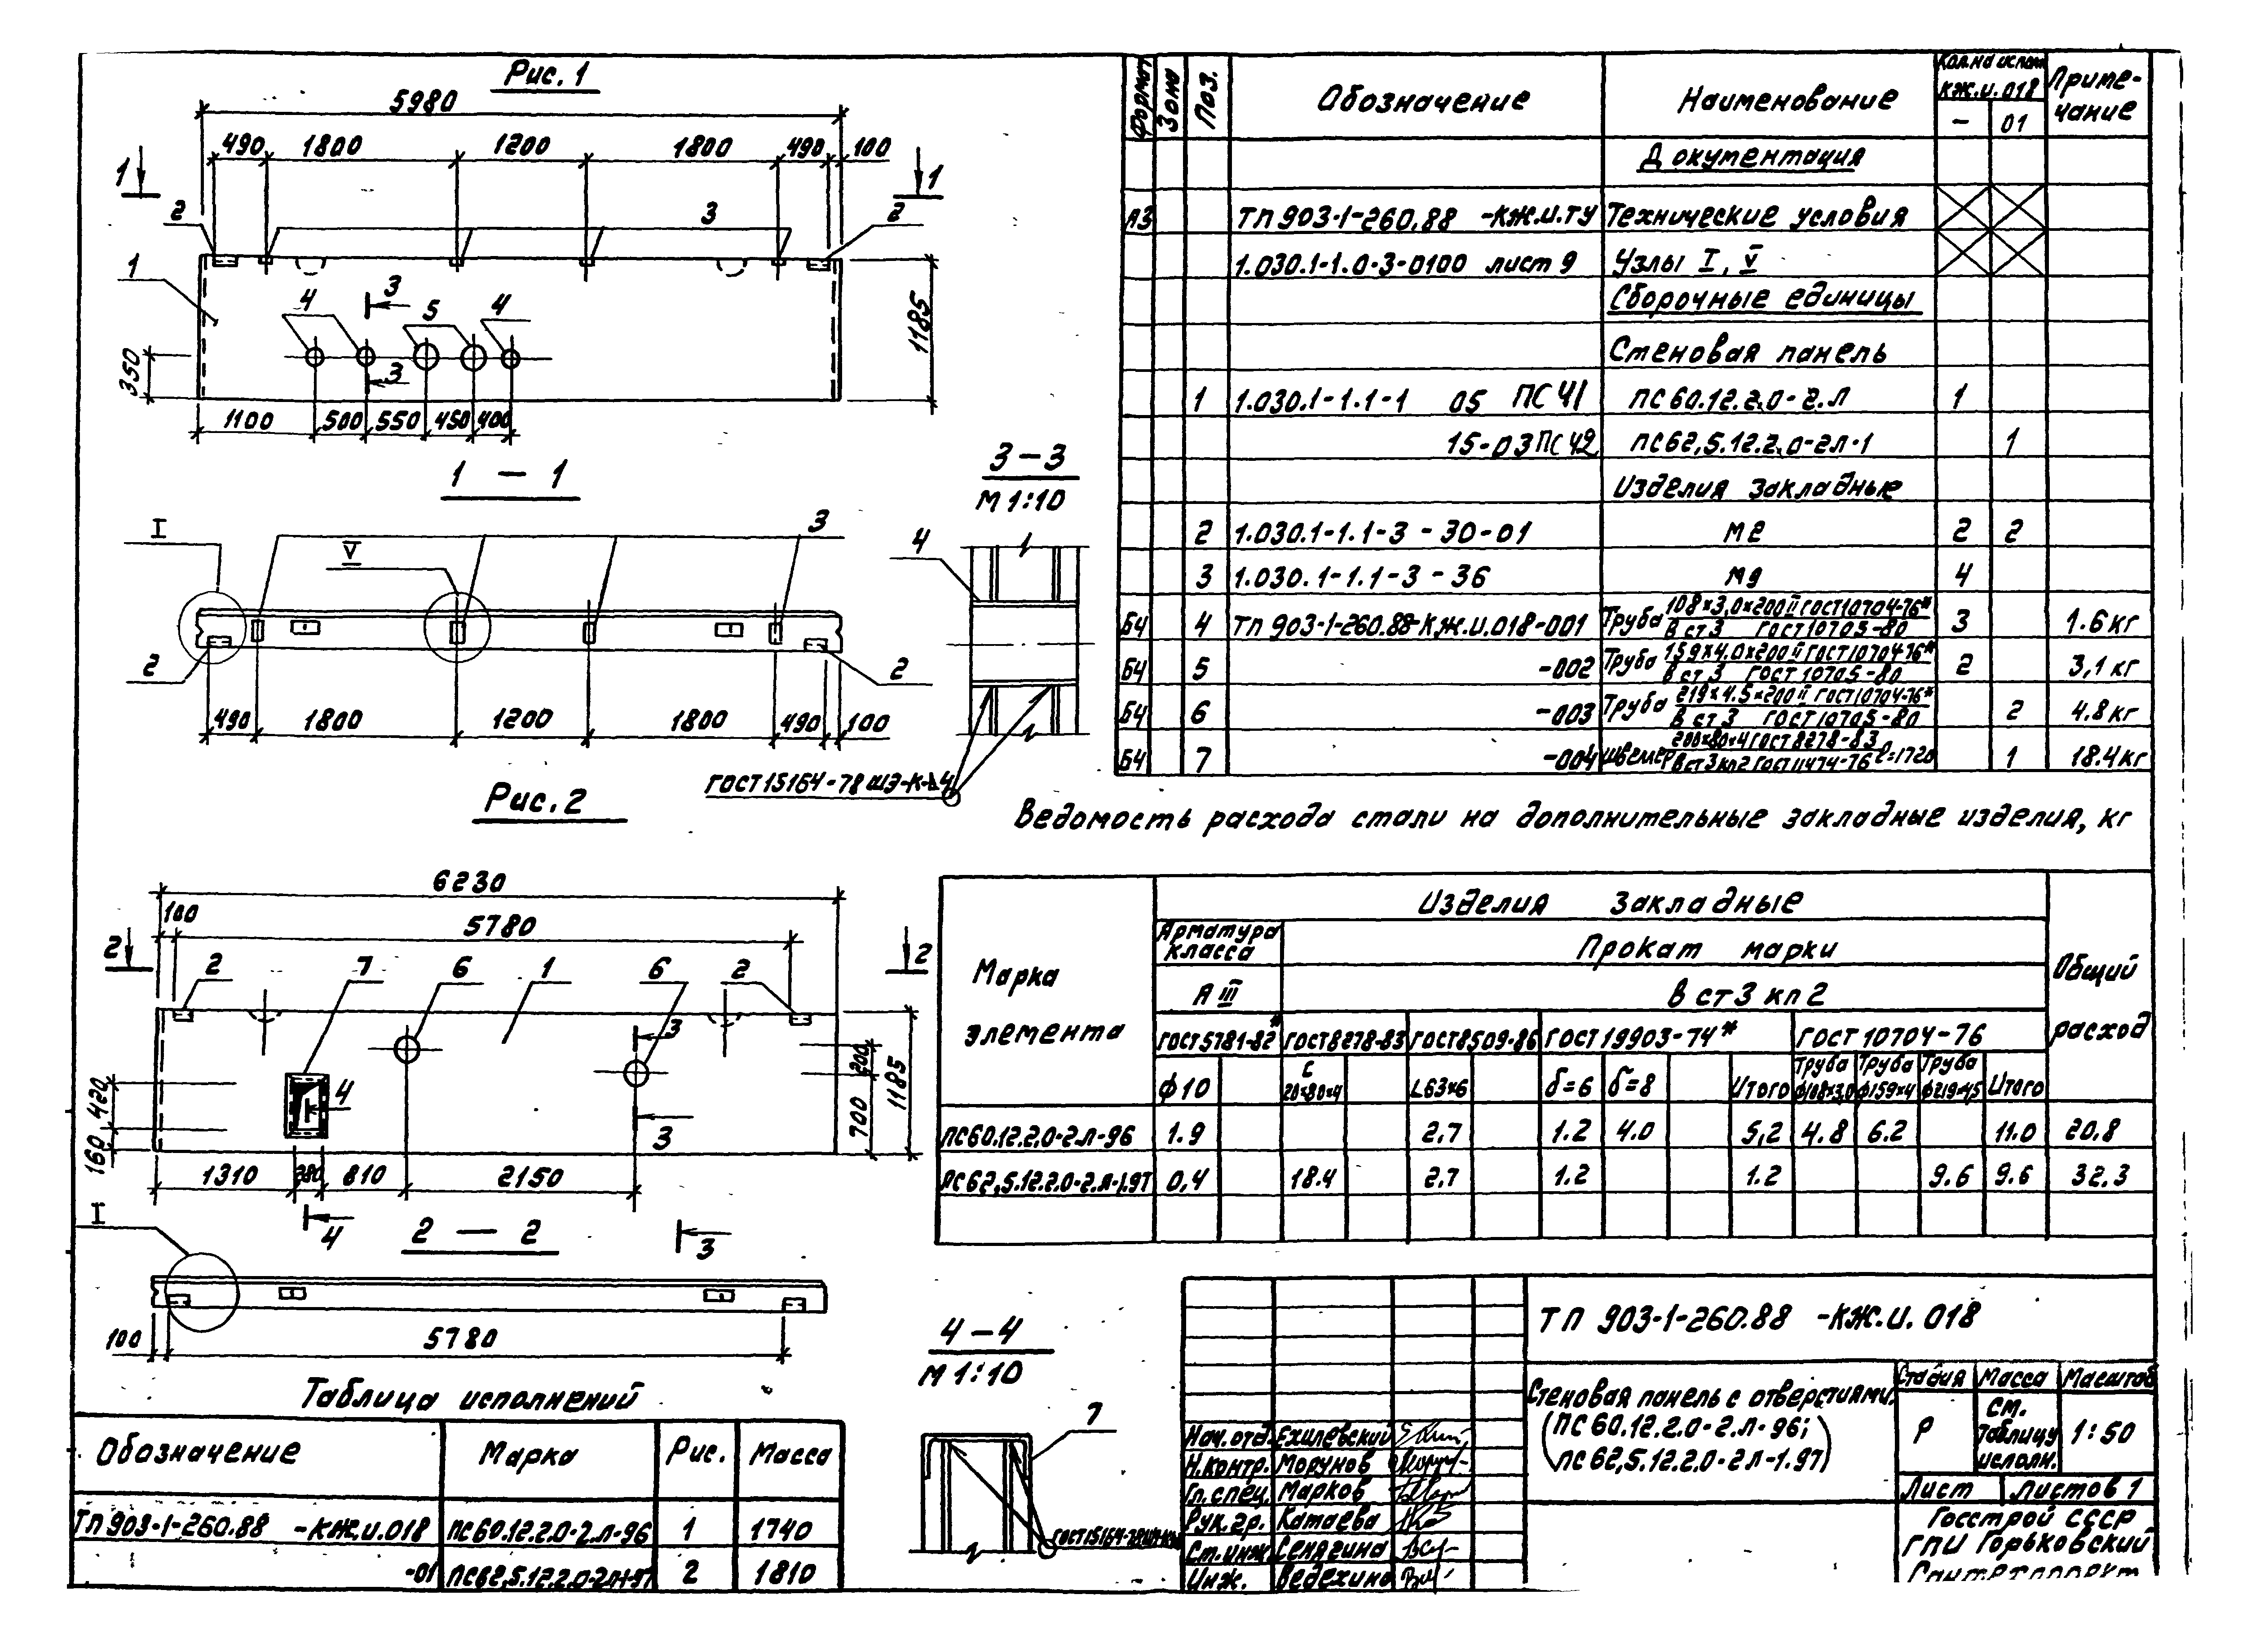 Рис. 1
5980
490 1800 1200 1800 490 100
1 1
2 3 2
1 4 3 5 4
3
350
1185
1100 500 550 450 400
1 – 1
3 – 3
М 1:10
I V 3 4
2 2
490 1800 1200 1800 490 100
ГОСТ 15164-78 ШЭ-К-Δ4
Рис. 2
6230
100 5780
2 2
2 7 6 1 6 2
3
4
3
420
160
200
700
1185
1310 280 810 2150
I 4 3
2 — 2
100 5780
4 – 4
М 1:10
7
Таблица исполнений
Обозначение Марка Рис. Масса
ТП 903-1-260.88 -КЖ.И.018 ПС60.12.2.0-2.Л-96 1 1740
-01 2 1810
Формат Зона Поз. Обозначение Наименование Кол. на испол. КЖ.И.018 Приме-
чание
– 01
Документация
А3 ТП 903-1-260.88 -КЖ.И.ТУ Технические условия
1.030.1-1.0-3-0100 лист 9 Узлы I, V
Сборочные единицы
Стеновая панель
1 1.030.1-1.1-1 05 ПС41 ПС60.12.2.0-2.Л 1
15-03 ПС42 ПС62,5.12.2.0-2Л-1 1
Изделия закладные
2 1.030.1-1.1-3-30-01 М2 2 2
3 1.030.1-1.1-3-36 М9 4
Б4 4 ТП 903-1-260.88-КЖ.И.018-001 Труба 108×3,0×200 II ГОСТ10704-76* 3 1.6 кг
В ст3 ГОСТ10705-80
Б4 5 -002 Труба 159×4.0×200 II ГОСТ10704-76* 2 3,1 кг
В ст3 ГОСТ 10705-80
Б4 6 -003 Труба 219×4.5×200 II ГОСТ10704-76* 2 4.8 кг
В ст3 ГОСТ10705-80
Б4 7 -004 Швеллер 200×80×4 ГОСТ8278-83 ℓ=1720 1 18.4кг
В ст3кп2 ГОСТ 11474-76
Ведомость расхода стали на дополнительные закладные изделия, кг
Марка
элемента
Изделия закладные
Общий
расход
Арматура
класса
Прокат марки
А III В ст3 кп2
ГОСТ5781-82* ГОСТ8278-83 ГОСТ8509-86 ГОСТ 19903-74* ГОСТ 10704-76
Труба Труба Труба
ф10 L63×6 δ=6 δ=8 Итого ф108×3,0 ф159×4 ф219×4,5 Итого
ПС60.12.2.0-2.Л-96 1.9 2.7 1.2 4.0 5,2 4.8 6.2 11.0 20.8
ПС62,5.12.2.0-2.Л-1.97 0,4 18.4 2.7 1.2 1.2 9.6 9.6 32.3
ТП 903-1-260.88 -КЖ.И.018
Стеновая панель с отверстиями.
(ПС60.12.2.0-2.Л-96;
ПС62,5.12.2.0-2Л-1.97)
Стадия Масса Масштаб
Р См. таблицу исполн. 1:50
Лист Листов 1
Госстрой СССР
ГПИ Горьковский
Сантехпроект
Нач. отд. Ехилевский
Н.контр. Морунов
Гл. спец. Марков
Рук. гр. Катаева
Ст. инж. Сенягина
Инж. Ведехина